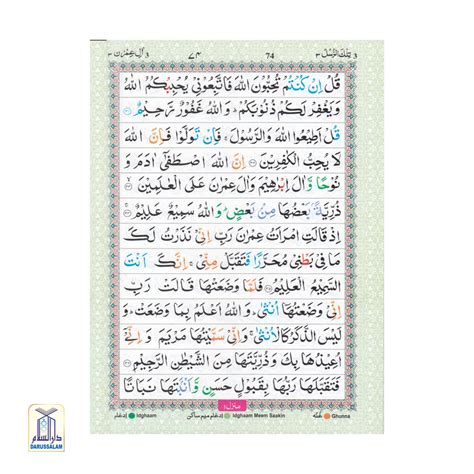 3 تِلْكَ الرُّسُل ٣ 74 ٧٤ اٰل عِمْرٰن ٣ 3
قُلْ اِنْ كُنْتُمْ تُحِبُّوْنَ اللّٰهَ فَاتَّبِعُوْنِيْ يُحْبِبْكُمُ اللّٰهُ
وَيَغْفِرْ لَكُمْ ذُنُوْبَكُمْ ؕ وَاللّٰهُ غَفُوْرٌ رَّحِيْمٌ ﴿۳۱﴾
قُلْ اَطِيْعُوا اللّٰهَ وَالرَّسُوْلَ ۚ فَاِنْ تَوَلَّوْا فَاِنَّ اللّٰهَ
لَا يُحِبُّ الْكٰفِرِيْنَ ﴿۳۲﴾ اِنَّ اللّٰهَ اصْطَفٰۤى اٰدَمَ وَ
نُوْحًا وَّاٰلَ اِبْرٰهِيْمَ وَاٰلَ عِمْرٰنَ عَلَى الْعٰلَمِيْنَ ﴿۳۳﴾
ذُرِّيَّةًۢ بَعْضُهَا مِنْۢ بَعْضٍ ؕ وَاللّٰهُ سَمِيْعٌ عَلِيْمٌ ﴿۳۴﴾
اِذْ قَالَتِ امْرَاَتُ عِمْرٰنَ رَبِّ اِنِّيْ نَذَرْتُ لَكَ
مَا فِيْ بَطْنِيْ مُحَرَّرًا فَتَقَبَّلْ مِنِّيْ ۚ اِنَّكَ اَنْتَ
السَّمِيْعُ الْعَلِيْمُ ﴿۳۵﴾ فَلَمَّا وَضَعَتْهَا قَالَتْ رَبِّ
اِنِّيْ وَضَعْتُهَاۤ اُنْثٰى ؕ وَاللّٰهُ اَعْلَمُ بِمَا وَضَعَتْ ؕ وَ
لَيْسَ الذَّكَرُ كَالْاُنْثٰى ۚ وَاِنِّيْ سَمَّيْتُهَا مَرْيَمَ وَ اِنِّيْۤ
اُعِيْذُهَا بِكَ وَ ذُرِّيَّتَهَا مِنَ الشَّيْطٰنِ الرَّجِيْمِ ﴿۳۶﴾
فَتَقَبَّلَهَا رَبُّهَا بِقَبُوْلٍ حَسَنٍ وَّاَنْۢبَتَهَا نَبَاتًا
منزل ١
غنه Ghunna ادغام ميم ساكن Idghaam Meem Saakin ادغام Idghaam
دارالسلام
DARUSSALAM